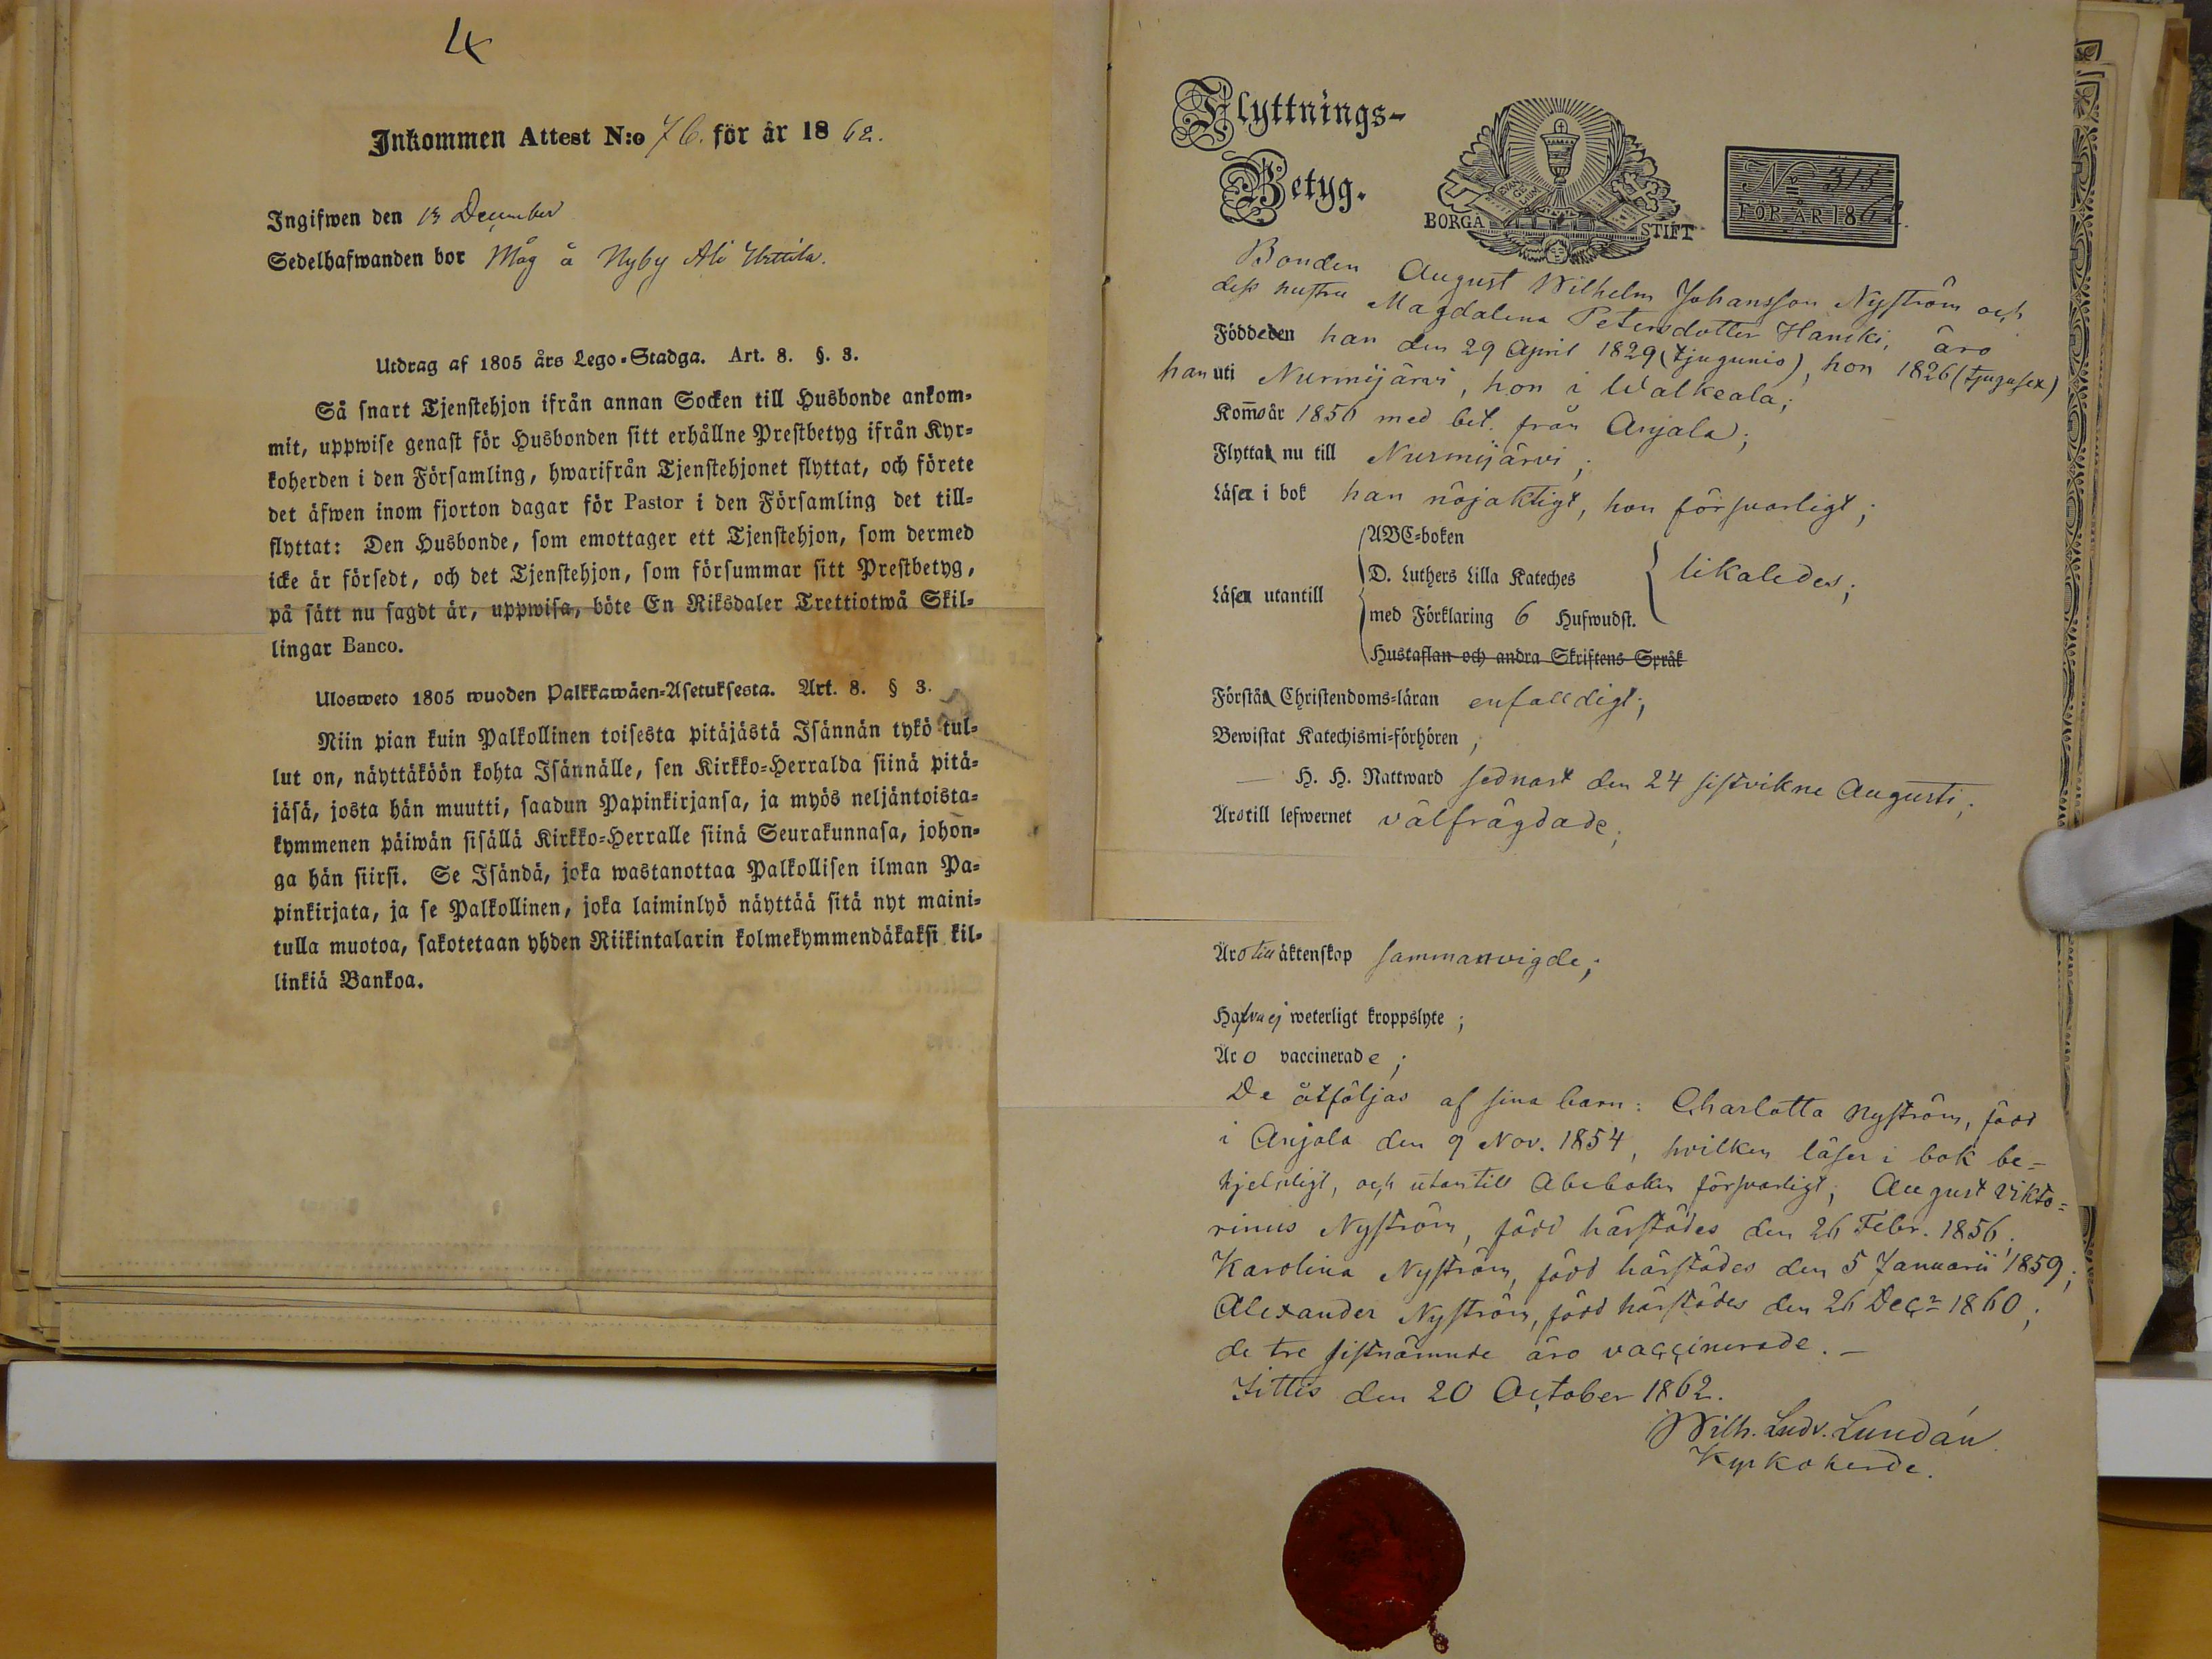 Inkommen Attest N:o 76. för år 1862.
Ingifwen den 13 December
Sedelhafwanden bor Måg å Nyby Ali Urttila.
Utdrag af 1805 års Lego-Stadga. Art. 8. §. 3.
Så snart Tjenstehjon ifrån annan Socken till Husbonde ankom-
mit, uppwise genast för Husbonden sitt erhållne Prestbetyg ifrån Kyr-
koherden i den Församling, hwarifrån Tjenstehjonet flyttat, och förete
det äfwen inom fjorton dagar för Pastor i den Församling det till-
flyttat: Den Husbonde, som emottager ett Tjenstehjon, som dermed
icke är försedt, och det Tjenstehjon, som försummar sitt Prestbetyg,
på sätt nu sagdt är, uppwisa, böte En Riksdaler Trettiotwå Skil-
lingar Banco.
Ulosweto 1805 wuoden Palkkawäen-Asetuksesta. Art. 8. § 3.
Niin pian kuin Palkollinen toisesta pitäjästä Isännän tykö tul-
lut on, näyttäköön kohta Isännälle, sen Kirkko-Herralda siinä pitä-
jäsä, josta hän muutti, saadun Papinkirjansa, ja myös neljäntoista-
kymmenen päiwän sisällä Kirkko-Herralle siinä Seurakunnasa, johon-
ga hän siirsi. Se Isändä, joka wastanottaa Palkollisen ilman Pa-
pinkirjata, ja se Palkollinen, joka laiminlyö näyttää sitä nyt maini-
tulla muotoa, sakotetaan yhden Riikintalarin kolmekymmendäkaksi kil-
linkiä Bankoa.
Flyttnings-
Betyg.
BORGÅ STIFT
No 315
FÖR ÅR 1862.
Bonden August Wilhelm Johansson Nyström och
dess hustru Magdalena Petersdotter Hanski, äro
Födde den han den 29 April 1829 (tjugunio), hon 1826 (tjugusex)
han uti Nurmijärvi, hon i Walkeala;
Komo år 1856 med bet. från Anjala;
Flytta nu till Nurmijärvi;
Läser i bok han nöjaktigt, hon försvarligt;
Läser utantill
ABC-boken
D. Luthers Lilla Kateches
med Förklaring 6 Hufwudst.
Hustaflan och andra Skriftens Språk
likaledes;
Förstå Christendoms-läran enfalldigt;
Bewistat Katechismi-förhören;
— H. H. Nattward sednast den 24 sistvikne Augusti;
Äro till lefwernet välfrägdade;
Äro till äktenskap sammanvigde;
Hafva ej weterligt kroppslyte;
Äro vaccinerade;
De åtföljas af sina barn: Charlotta Nyström, född
i Anjala den 9 Nov. 1854, hvilken läser i bok be-
hjelpligt, och utantill Abcboken försvarligt; August Vikto-
rinus Nyström, född härstädes den 26 Febr. 1856;
Karolina Nyström, född härstädes den 5 Januarii 1859;
Alexander Nyström, född härstädes den 26 Decr 1860;
de tre sistnämnde äro vaccinerade. —
Iittis den 20 October 1862.
Wilh. Ludv. Lundán
Kyrkoherde.